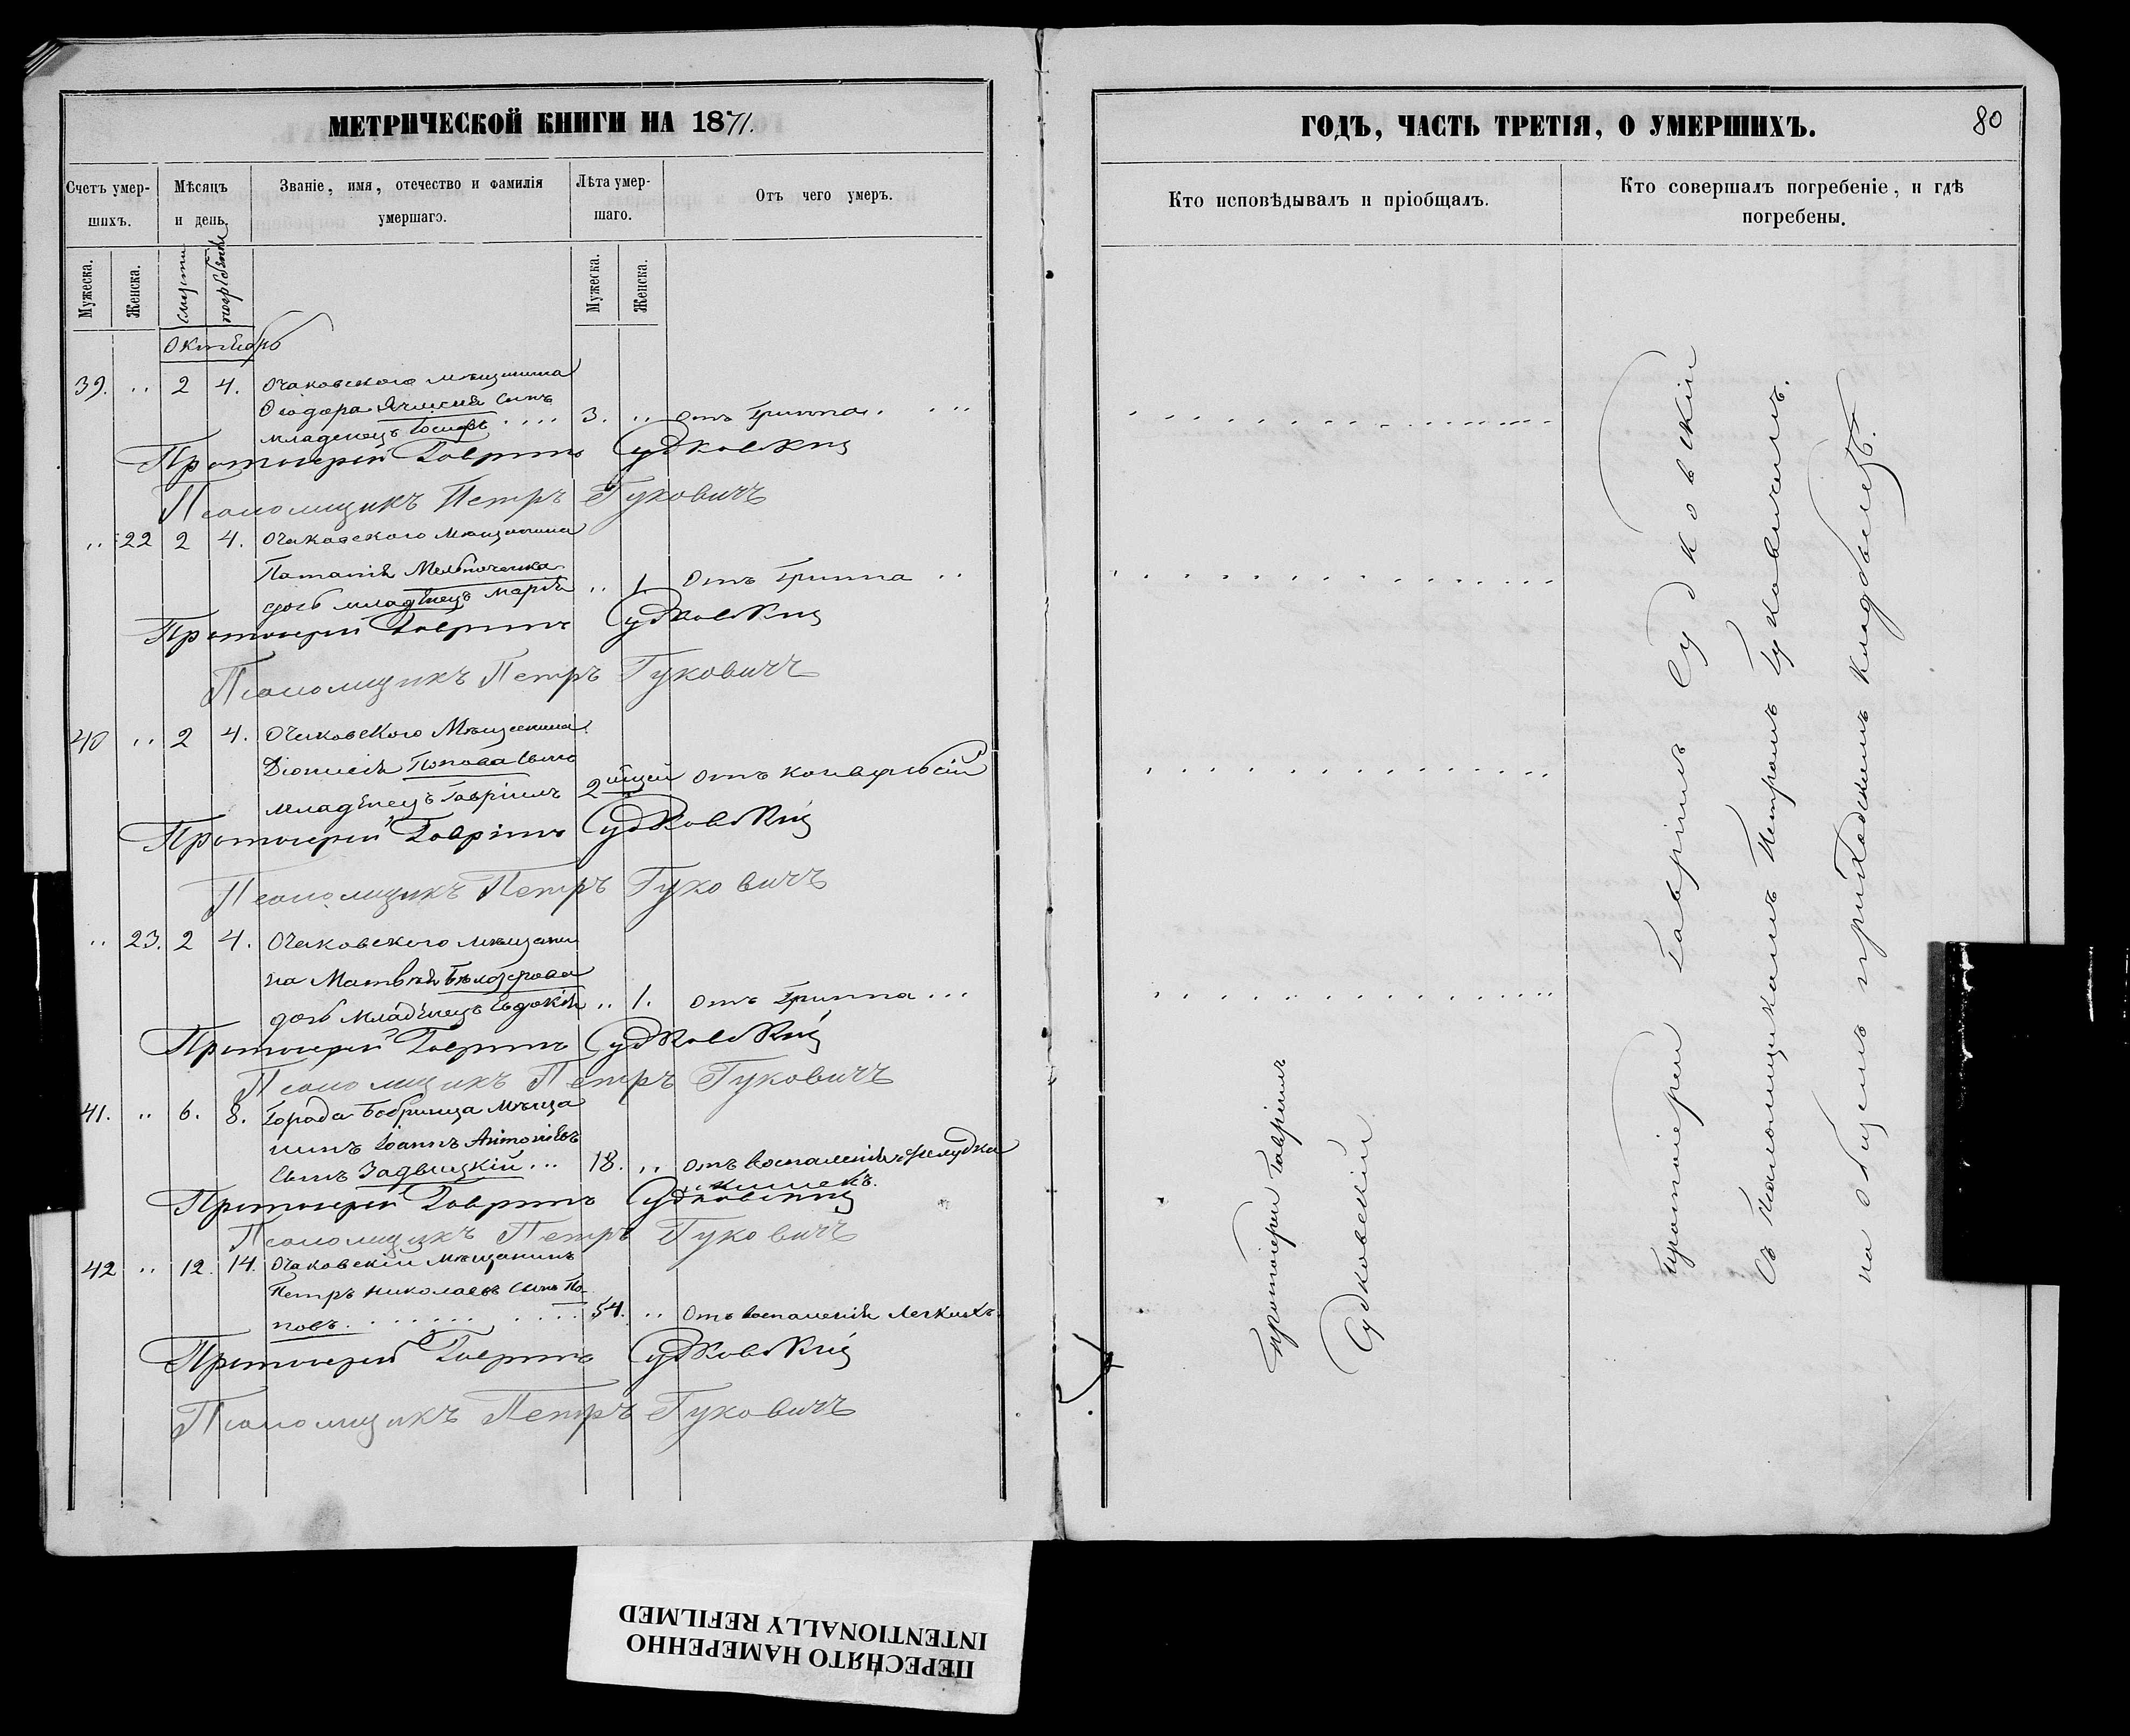 МЕТРИЧЕСКОЙ КНИГИ НА 1871.
Счетъ умер-
шихъ.
Мѣсяцъ
и день.
Званіе, имя, отечество и фамилія
умершаго.
Лѣта умер-
шаго.
Отъ чего умеръ.
Мужеска.
Женска.
смерти
погребенія
Мужеска.
Женска.
Октябрь
39. .. 2 4. Очаковского мѣщанина
Ѳеодора сынъ
младенецъ Іосифъ .... 3. .. отъ Гриппа. ...
Протоіерей Гавріилъ Судковскій
Псаломщикъ Петръ Гуковичъ
.. 22 2 4. Очаковского Мѣщанина
Патапія Мельниченка
дочь младенецъ Марія .. 1. Отъ Гриппа ..
Протоіерей Гавріилъ Судковскій
Псаломщикъ Петръ Гуковичъ
40 .. 2 4. Очаковского Мѣщанина
Діонисія Попова сынъ
младенецъ Гавріилъ 2 отъ конвульсій
Протоіерей Гавріилъ Судковскій
Псаломщикъ Петръ Гуковичъ
.. 23. 2 4. Очаковского мѣщани
на Матвѣя Бѣлозерова
дочь Младенецъ Евдокія .. 1. отъ Гриппа ...
Протоіерей Гавріилъ Судковскій
Псаломщикъ Петръ Гуковичъ
41. .. 6. 8. Города Бобринца мѣща
нинъ Іоаннъ Антоніевъ
сынъ Задвицкій ... 18. .. отъ воспаленія желудка
и кишекъ.
Протоіерей Гавріилъ Судковскій
Псаломщикъ Петръ Гуковичъ
42 .. 12. 14. Очаковскій мѣщанинъ
Петръ Николаевъ сынъ По-
повъ. ...... .... 54. .. Отъ воспаленія легкихъ.
Протоіерей Гавріилъ Судковскій
Псаломщикъ Петръ Гуковичъ
ГОДЪ, ЧАСТЬ ТРЕТІЯ, О УМЕРШИХЪ.
80
Кто исповѣдывалъ и пріобщалъ.
Кто совершалъ погребеніе, и гдѣ
погребены.
Протоіерей Гавріилъ
Судковскій
Протоіерей Гавріилъ Судковскій
Съ Псаломщикомъ Петромъ Гуковичемъ.
на общемъ приходскомъ кладбищѣ.
ПЕРЕСНЯТО НАМЕРЕННО
INTENTIONALLY REFILMED